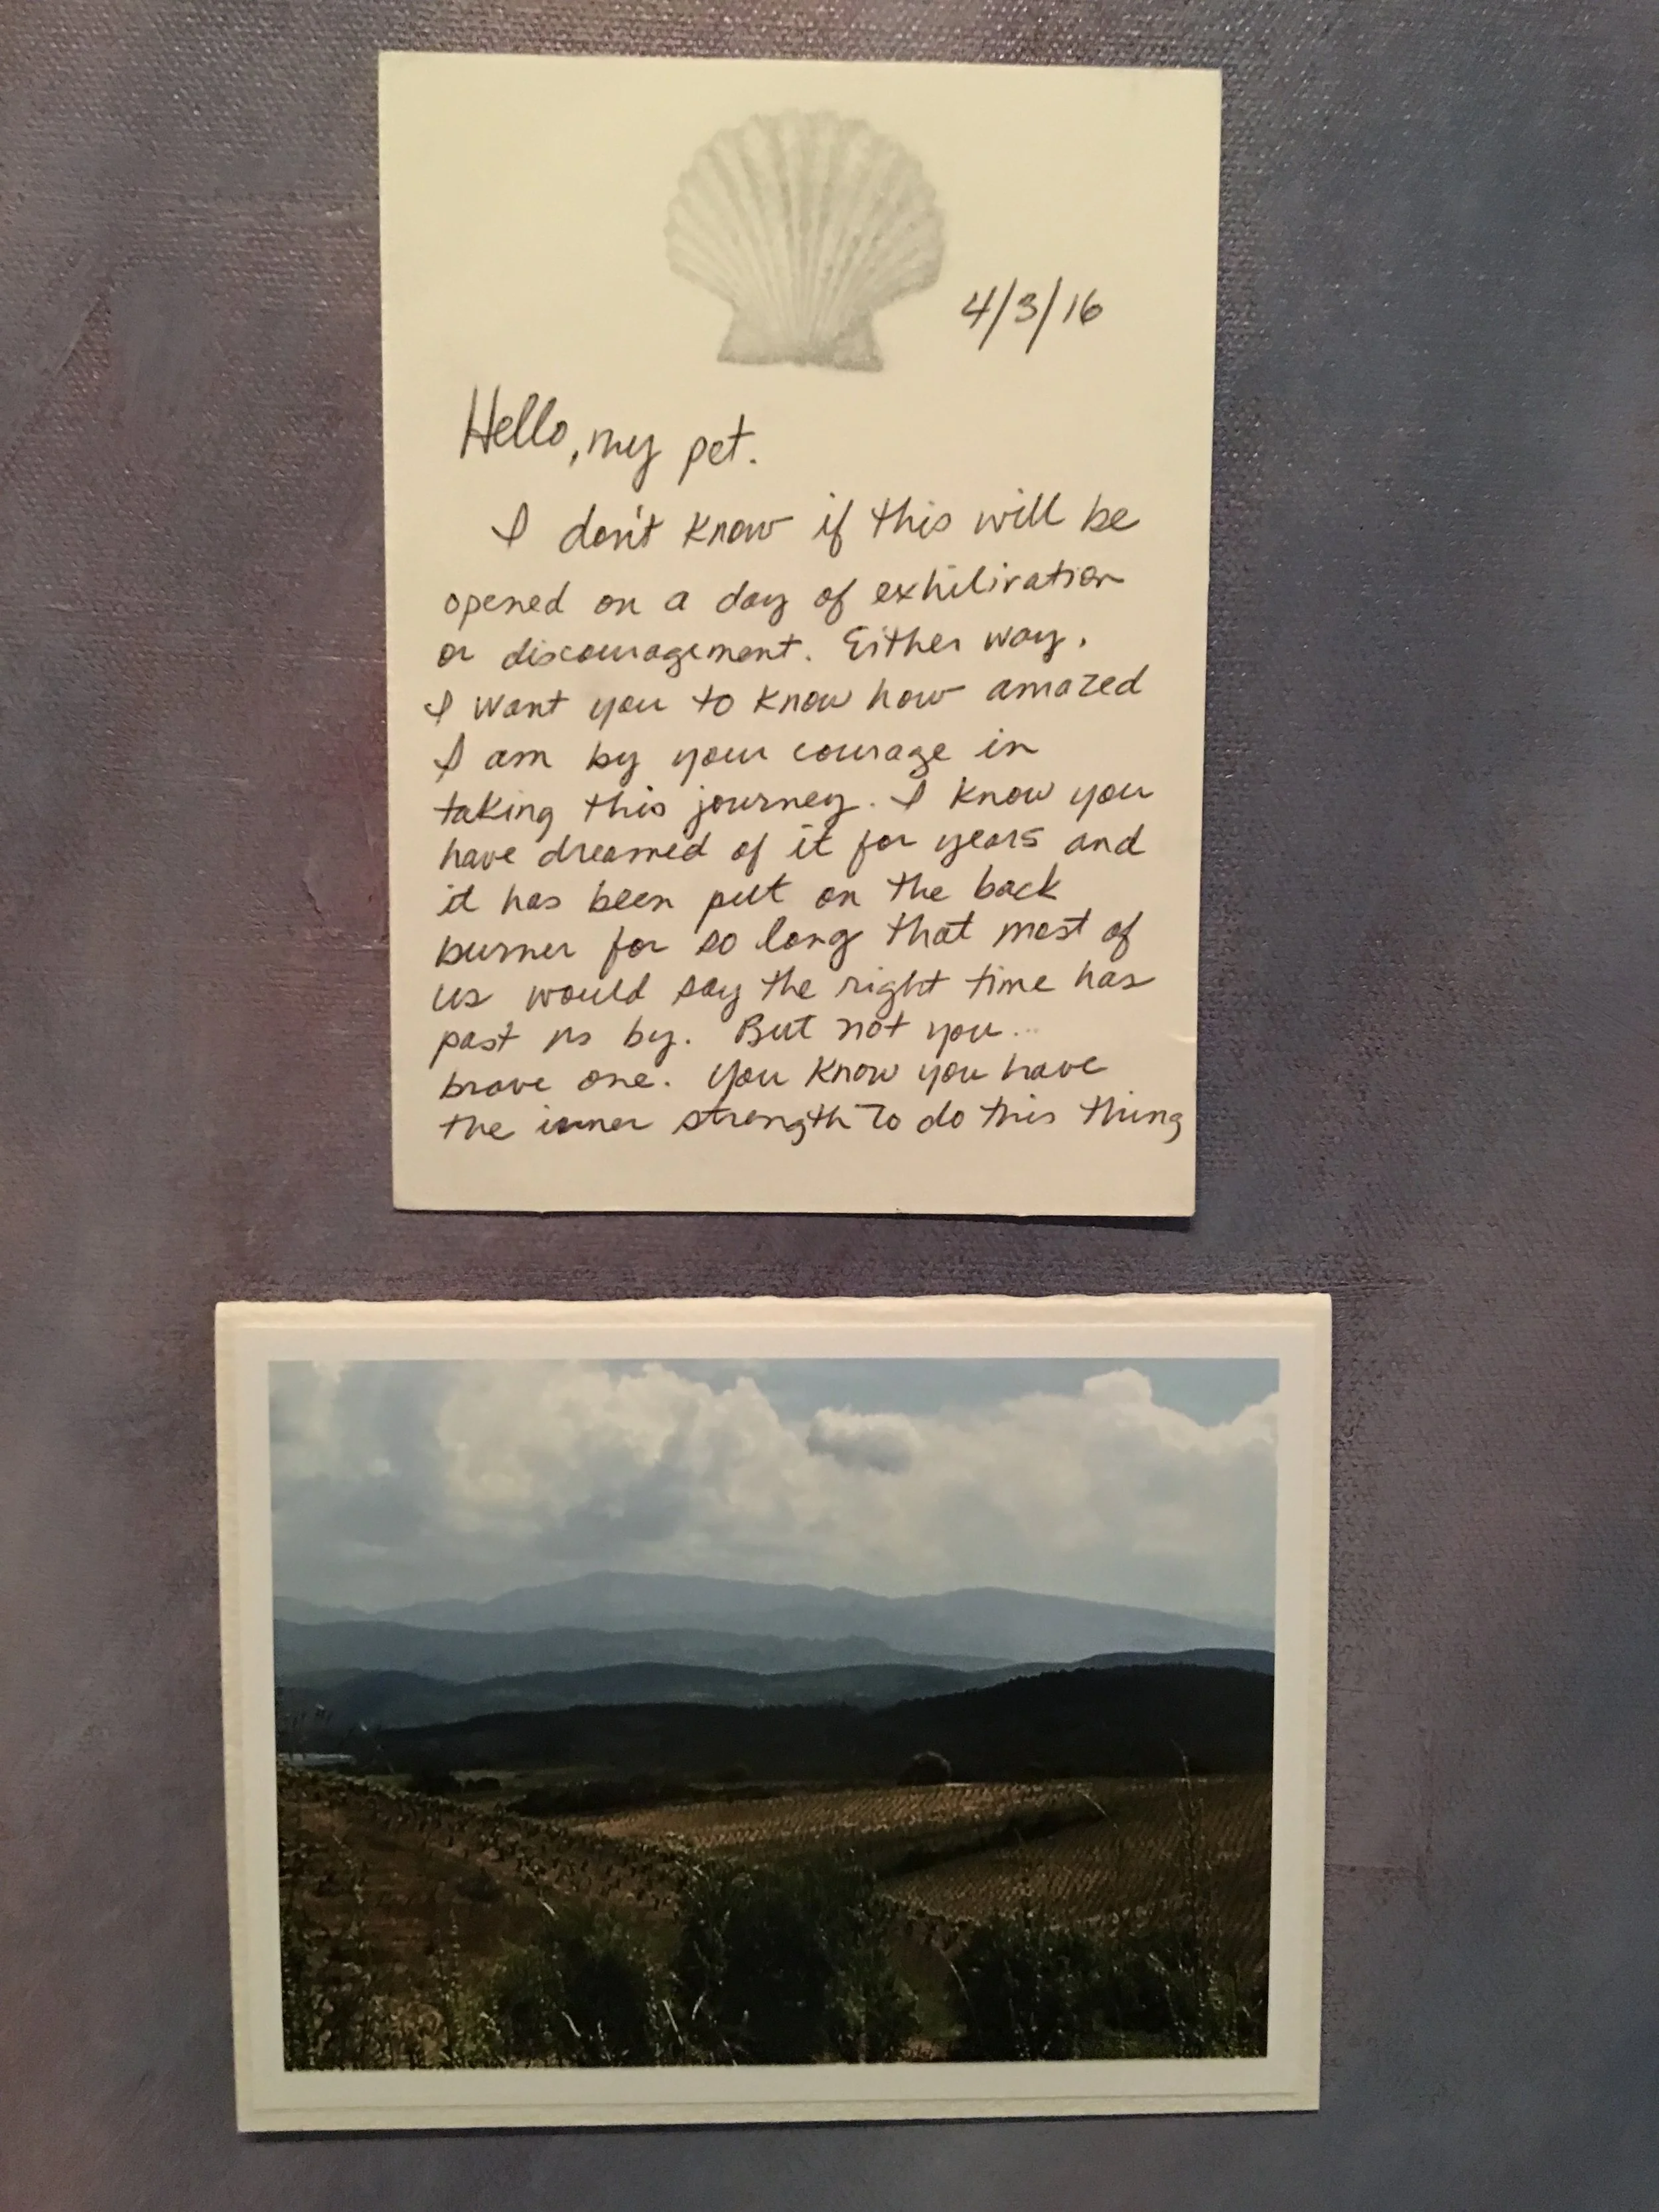 4/3/16
Hello, my pet.
I don't know if this will be
opened on a day of exhiliration
or discouragement. Either way,
I want you to know how amazed
I am by your courage in
taking this journey. I know you
have dreamed of it for years and
it has been put on the back
burner for so long that most of
us would say the right time has
past us by. But not you...
brave one. You know you have
the inner strength to do this thing